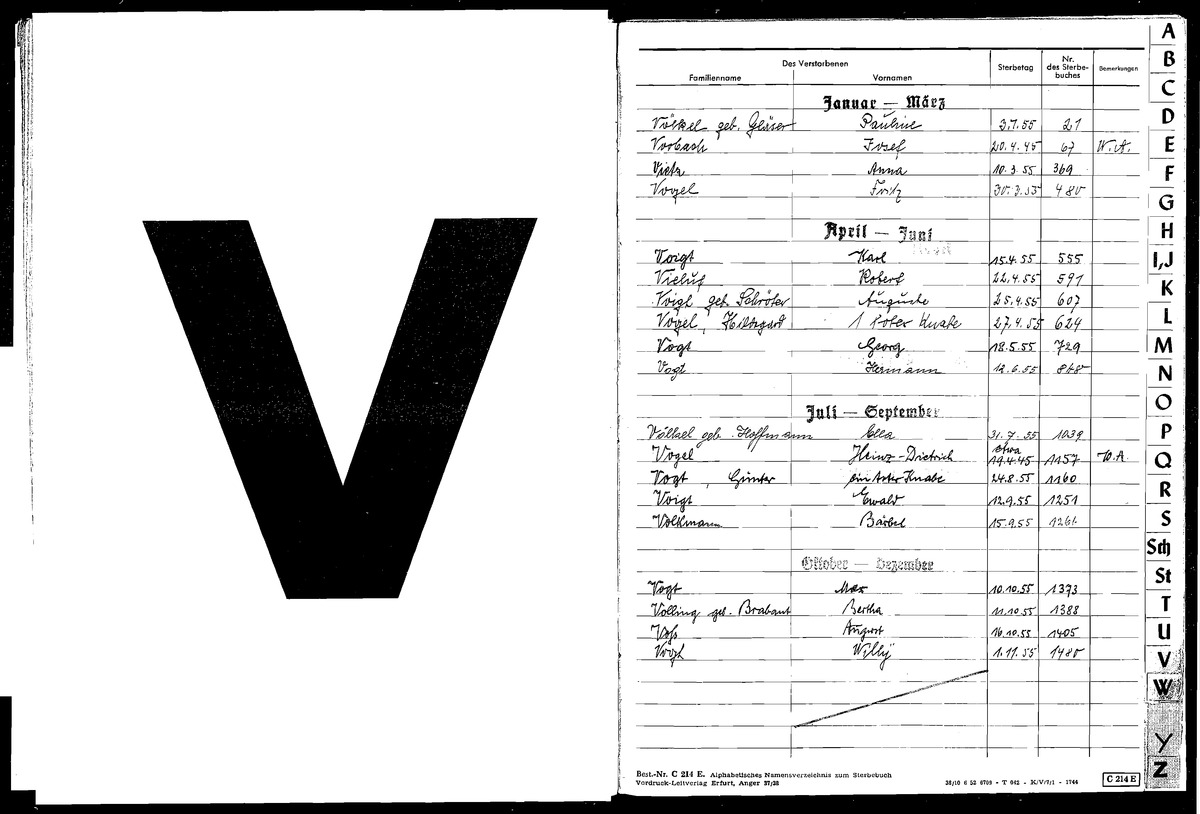 V
Des Verstorbenen
Familienname Vornamen Sterbetag Nr. des Sterbebuches Bemerkungen
Januar — März
Völkel geb. Gläser Pauline 3.1.55 21
Vorbach Josef 20.4.45 67 W.A.
Vietz Anna 10.3.55 369
Vogel Fritz 30.3.55 480
April — Juni
Voigt Karl 15.4.55 555
Vieluf Robert 22.4.55 591
Voigt geb. Schröter Auguste 25.4.55 607
Vogel, Hildegard 1 toter Knabe 27.4.55 624
Vogt Georg 18.5.55 729
Vogt Hermann 12.6.55
Juli — September
Völkel geb. Hoffmann Ella 31.7.55 1039
Vogel Heinz-Dietrich etwa 19.4.45 1157 W.A.
Vogt, Günter ein toter Knabe 24.8.55 1160
Voigt Ewald 12.9.55 1251
Volkmann Bärbel 15.9.55 1261
Oktober — Dezember
Vogt Max 10.10.55 1373
Völling geb. Brabant Bertha 11.10.55 1388
Voß August 16.10.55 1405
Vogt Willy 1.11.55 1480
Best.-Nr. C 214 E. Alphabetisches Namensverzeichnis zum Sterbebuch
Vordruck-Leitverlag Erfurt, Anger 37/38 38/10 6 52 6709 - T 042 - K/V/7/1 - 1744 C 214 E
A
B
C
D
E
F
G
H
I,J
K
L
M
N
O
P
Q
R
S
Sch
St
T
U
V
W
Y
Z